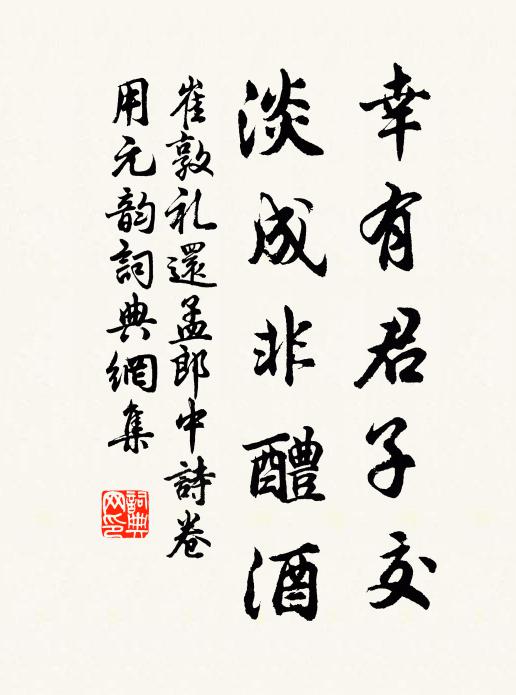 幸有君子交
淡成非醴酒
崔敦礼還孟郎中詩卷
用元韵詞典網集
詞典网印